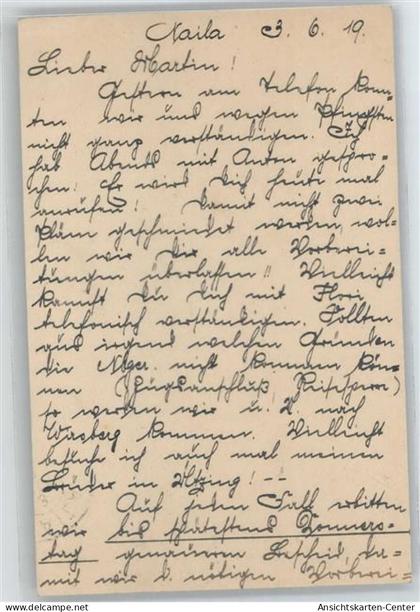 Naila 3. 6. 19.
Lieber Martin!
Gestern am Telefon konn-
ten wir uns wegen Pfingsten
nicht ganz verständigen. Ich
hab Abends mit Anton gespro-
chen! Er wird dich heute mal
anrufen! Damit nicht zwei
Pläne geschmiedet werden, wol-
len wir dir alle Vorberei-
tungen überlassen!! Vielleicht
kannst du dich mit Flori
telefonisch verständigen. Sollten
aus irgend welchen Gründen
die nicht kommen kön-
nen (Zugsanschluß, Reisesperre)
so werden wir u. U. nach
kommen. Vielleicht
besuche ich auch mal meinen
Bruder in !--
Auf jeden Fall erbitten
wir bis spätestens Donners-
tag genaueren Bescheid, da-
mit wir d. nötigen Vorberei-
Ansichtskarten-Center